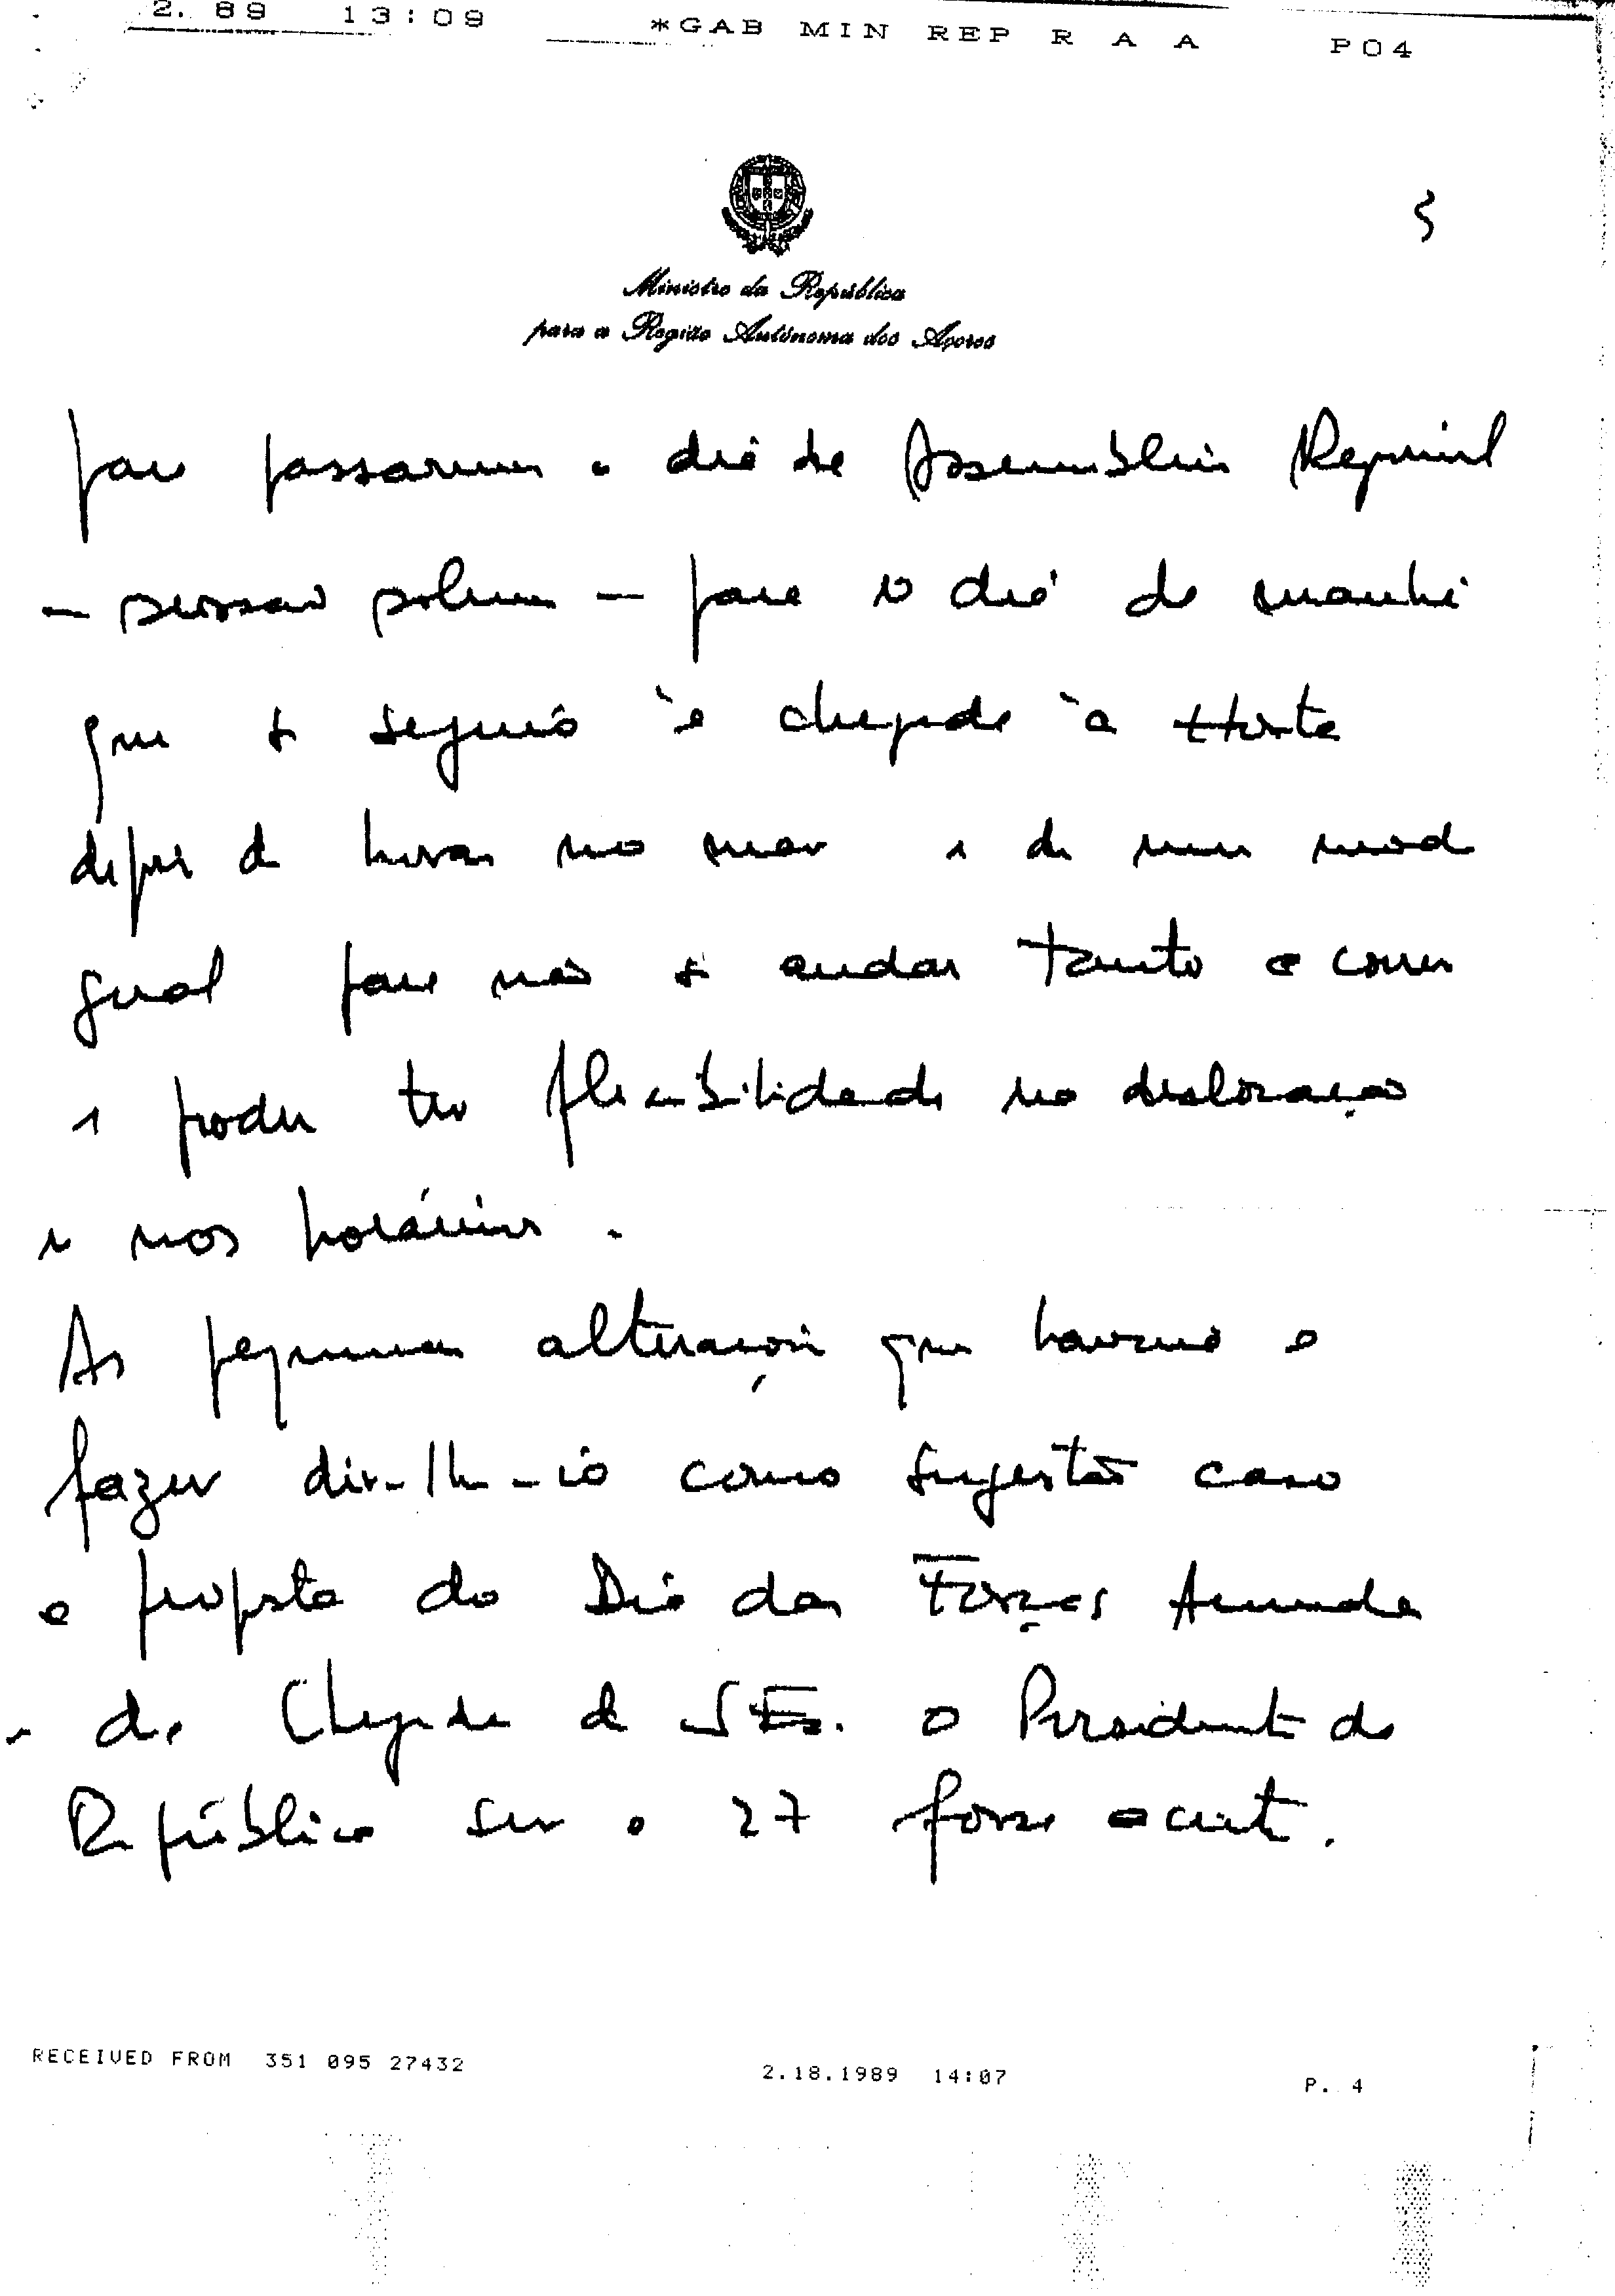 2. 89 13:09 *GAB MIN REP R A A P04
3
Ministro da República
para a Região Autónoma dos Açores
para passarmos o dia da Assembleia Regional
— sessão solene — para o dia da manhã
que se seguia à chegada à Horta
depois de horas no mar e de um modo
geral para não se andar tanto a correr
e poder ter flexibilidade na deslocação
e nos horários.
As pequenas alterações que haveria a
fazer dir-lhe-ia como sugestão caso
a proposta do Dia das Forças Armadas
e da Chegada de S Ex. o Presidente da
República ser a 27 fosse aceite.
RECEIVED FROM 351 095 27432 2.18.1989 14:07 P. 4